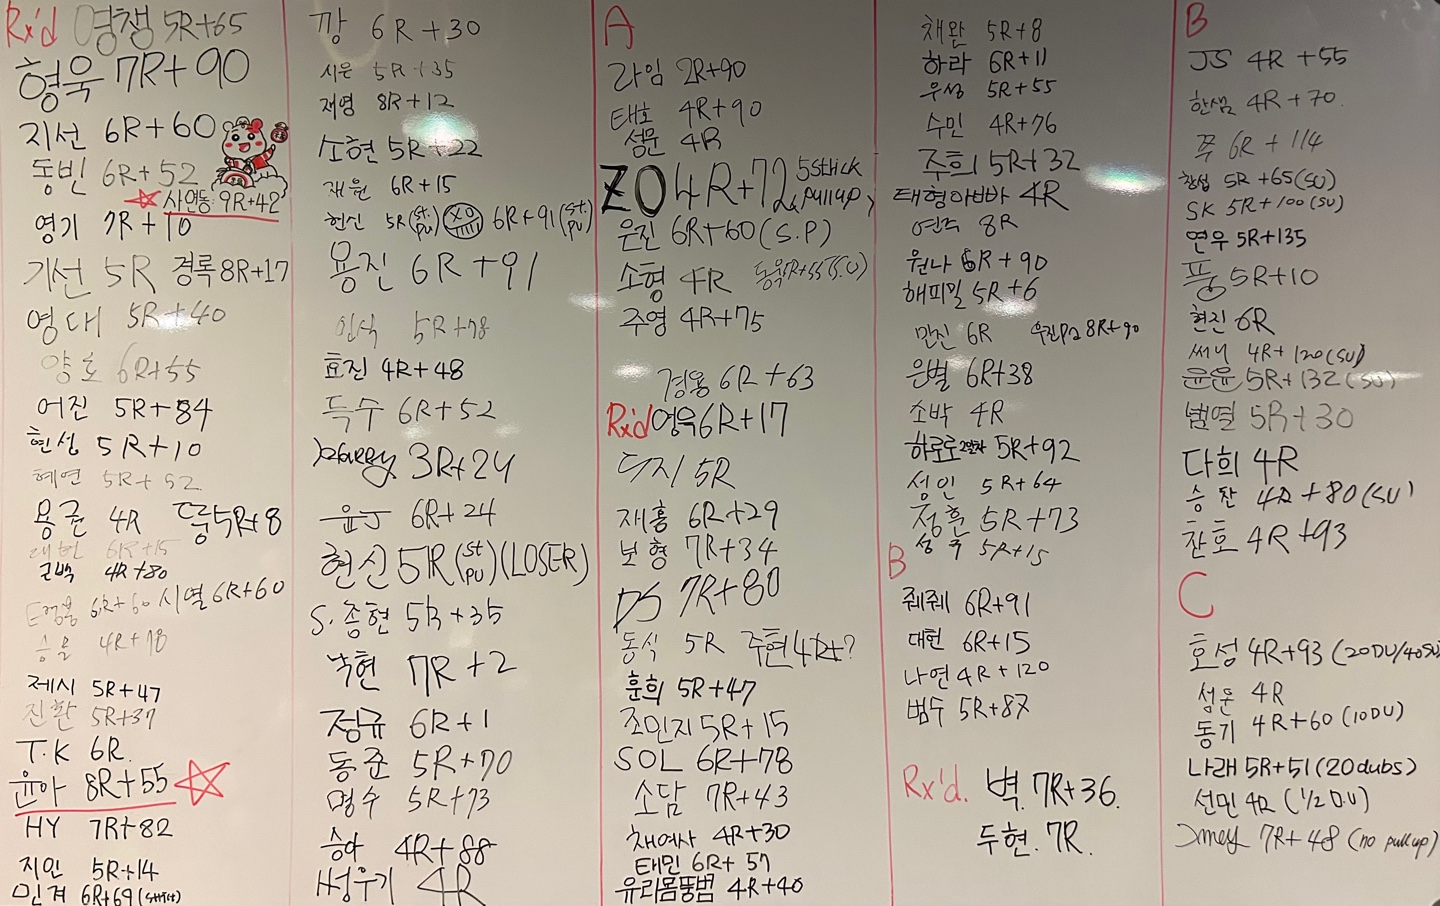 Rx'd 영챔 5R+65
형욱 7R+90
지선 6R+60
동빈 6R+52
사연동 9R+42
영기 7R+10
기선 5R 경록 8R+17
영대 5R+40
양호 6R+55
어진 5R+84
현성 5R+10
혜연 5R+52
용근 4R 뚱 5R+8
대한 6R+15
근백 4R+80
6R+60 시열 6R+60
승율 4R+78
제시 5R+47
진환 5R+37
T.K 6R
윤아 8R+55
HY 7R+82
지인 5R+14
민겨 6R+69
깡 6R+30
시은 5R+35
재영 8R+12
소현 5R+22
재원 6R+15
현진 5R (st. pu) XO 6R+91 (st. pu)
용진 6R+91
인식 5R+78
효진 4R+48
득수 6R+52
Harry 3R+24
윤J 6R+24
현신 5R (st pu) (LOSER)
S.종현 5R+35
낙현 7R+2
정규 6R+1
동준 5R+70
명수 5R+73
승아 4R+88
성우기 4R
A
라임 2R+90
태호 4R+90
성문 4R
ZO 4R+72 5stick pullup
은진 6R+60 (S.P)
소형 4R 동욱 5R+55 (S.U)
주영 4R+75
경용 6R+63
Rx'd 영욱 6R+17
두지 5R
재홍 6R+29
보형 7R+34
DS 7R+80
동식 5R 주현 4R+?
훈희 5R+47
조민지 5R+15
SOL 6R+78
소담 7R+43
채여사 4R+30
태민 6R+57
유리몸뚱범 4R+40
채완 5R+8
하라 6R+11
우성 5R+55
수민 4R+76
주희 5R+32
태형아빠 4R
연주 8R
원나 6R+90
해피밀 5R+6
민진 6R 8R+90
은별 6R+38
소박 4R
하로로 5R+92
성인 5R+64
정훈 5R+73
성주 5R+15
B
줴줴 6R+91
대현 6R+15
나연 4R+120
범수 5R+87
Rx'd. 벽. 7R+36.
두현. 7R.
B
JS 4R+55
한샘 4R+70.
쭈 6R+114
찬섭 5R+65 (SU)
SK 5R+100 (SU)
연우 5R+135
풍 5R+10
현진 6R
써니 4R+120 (SU)
윤윤 5R+132 (SU)
범열 5R+30
다희 4R
승찬 4R+80 (SU)
찬호 4R+93
C
호성 4R+93 (20DU/40SU)
성운 4R
동기 4R+60 (10DU)
나래 5R+51 (20dubs)
선민 4R (1/2 D.U)
7R+48 (no pull up)